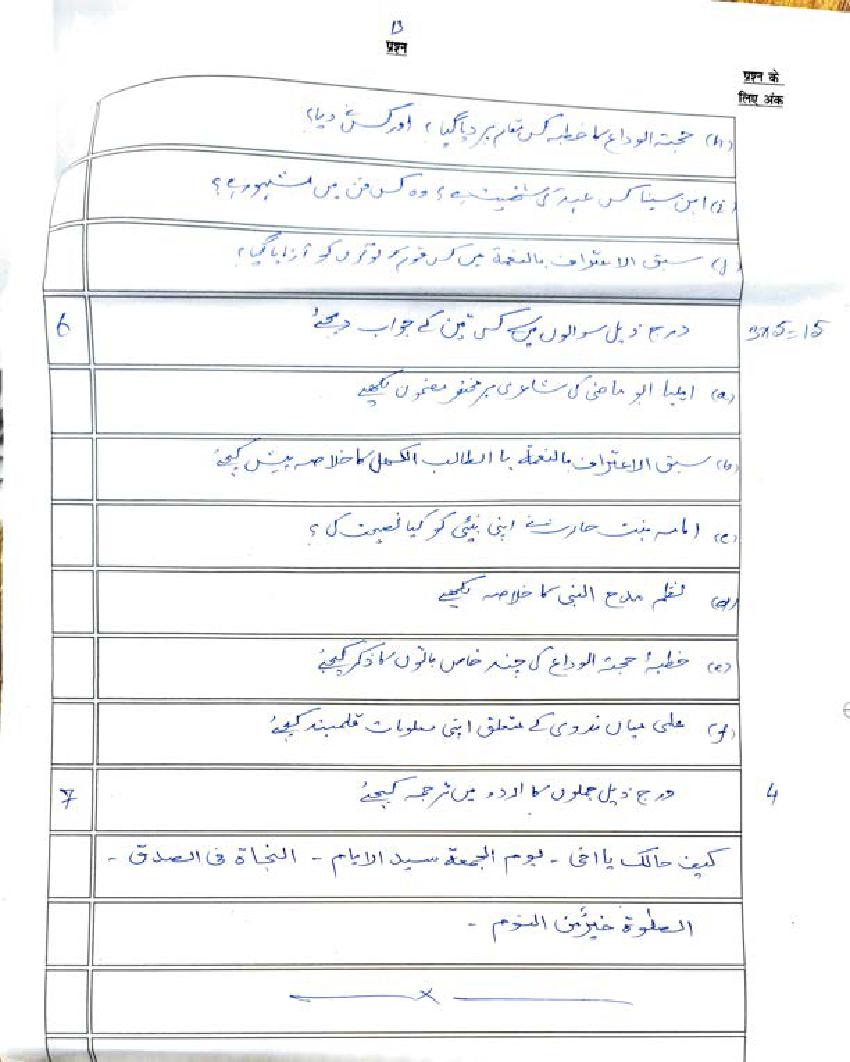 B
प्रश्न
प्रश्न के
लिए अंक
(h) حجتہ الوداع کا خطبہ کس مقام پر دیا گیا؟ اور کس نے دیا؟
(i) ابن سینا کس عہد کی شخصیت ہے؟ وہ کس فن میں مشہور ہے؟
(j) سبق الاعتراف بالنعمة میں کس قوم کے لوگوں کو آزمایا گیا؟
6 درج ذیل سوالوں میں سے کس تین کے جواب دیجئے 3x5=15
(a) ایلیا ابو ماضی کی شاعری پر مختصر مضمون لکھیے
(b) سبق الاعتراف بالنعمة یا الطالب الکسول کا خلاصہ پیش کیجئے
(c) امامہ بنت حارث نے اپنی بیٹی کو کیا نصیحت کی؟
(d) نظم مدح النبی کا خلاصہ لکھیے
(e) خطبۂ حجتہ الوداع کی چند خاص باتوں کا ذکر کیجئے
(f) علی میاں ندوی کے متعلق اپنی معلومات قلمبند کیجئے
7 درج ذیل جملوں کا اردو میں ترجمہ کیجئے 4
کیف حالک یا اخی - یوم الجمعة سید الایام - النجاة فی الصدق -
الصلوة خیر من النوم -